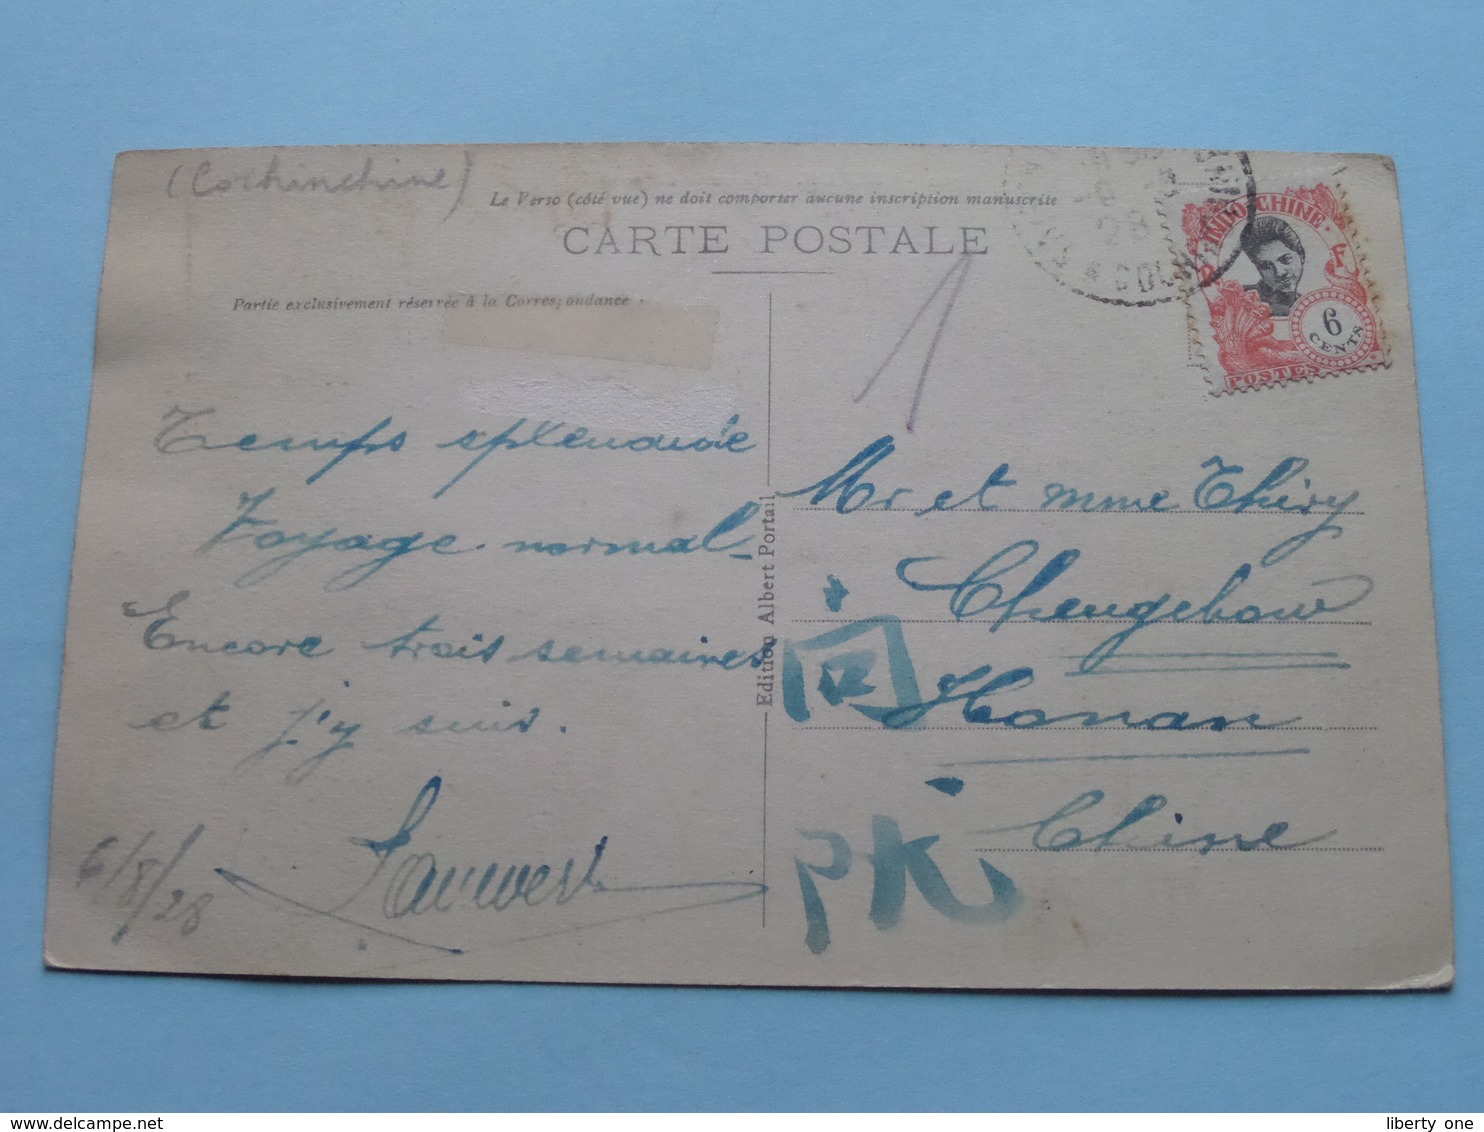 (Cochinchine)
Le Verso (côté vue) ne doit comporter aucune inscription manuscrite
CARTE POSTALE
Partie exclusivement réservée à la Correspondance
INDOCHINE
F
6
CENTS
POSTES
28
1
Temps splendide
Voyage normal
Encore trois semaines
et j'y suis.
Lauwers
6/8/28
Edition Albert Portail
Mr et Mme Thiry
Chengchow
Honan
Chine
河
liberty one